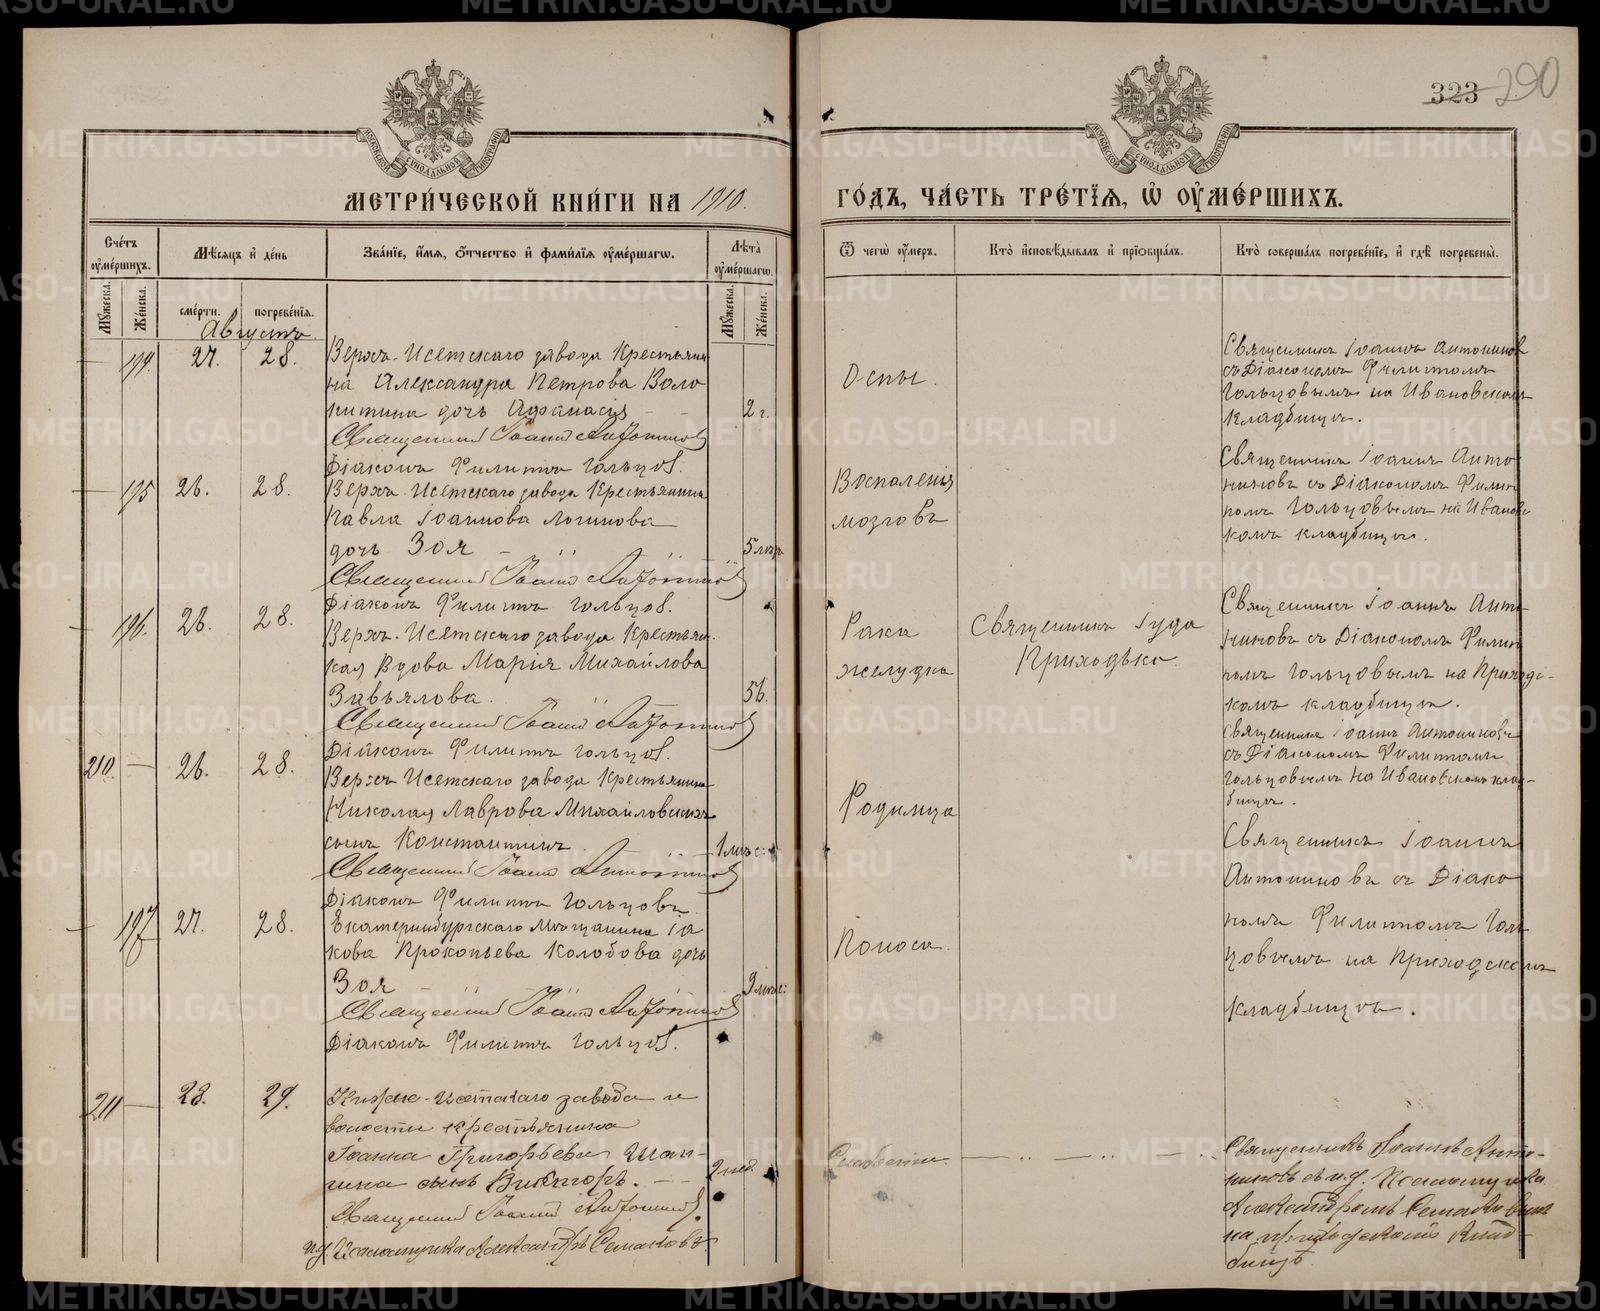 323 290
МЕТРИ́ЧЕСКОЙ КНИ́ГИ НА 1910.
ГО́ДЪ, ЧА́СТЬ ТРЕ́ТІѦ, Ѽ ОУ҆МЕ́РШИХЪ.
Сче́тъ оу҆ме́ршихъ.
Мѣ́сяцъ и҆ де́нь
Зва́ніе, и҆́мя, ѻ҆́тчество и҆ фами́лія оу҆ме́ршагѡ.
Лѣ́та оу҆ме́ршагѡ.
Ѿ чегѡ̀ оу҆́меръ.
Кто̀ и҆сповѣ́дывалъ и҆ пріѡбща́лъ.
Кто̀ соверша́лъ погребе́ніе, и҆ гдѣ̀ погребены̀.
Мꙋ́жеска.
Же́нска.
сме́рти.
погребе́нія.
Мꙋ́жеска.
Же́нска.
Августъ.
194 27. 28.
Верхъ-Исетскаго завода Крестьяни
на Александра Петрова Воло
китина дочь Афанасія
2 г.
Священникъ Іоаннъ Антониновъ
Діаконъ Филиппъ Гольцов.
Оспы.
Священникъ Іоаннъ Антонинов
съ Діакономъ Филиппомъ
Гольцовымъ на Ивановскомъ
Кладбищѣ.
195 26. 28.
Верхъ-Исетскаго завода Крестьянина
Павла Іоаннова Логинова
дочь Зоя
5 мѣс.
Священникъ Іоаннъ Антониновъ
Діаконъ Филиппъ Гольцов.
Воспаленія
мозговъ
Священникъ Іоаннъ Анто
ниновъ съ Діакономъ Филип
помъ Гольцовымъ на Ивановс
комъ кладбищѣ.
196. 26. 28.
Верхъ-Исетскаго завода Крестьян
кая Вдова Марія Михайлова
Завьялова.
56.
Священникъ Іоаннъ Антониновъ
Діаконъ Филиппъ Гольцов.
Рака
желудка
Священникъ Іуда
Приходько
Священникъ Іоаннъ Анто
ниновъ съ Діакономъ Филип
помъ Гольцовымъ на Приходс-
комъ кладбищѣ.
210. 26. 28.
Верхъ-Исетскаго завода Крестьянина
Николая Лаврова Михайловскихъ
сынъ Константинъ
1 мѣс:
Священникъ Іоаннъ Антониновъ
Діаконъ Филиппъ Гольцовъ
Родимца
Священникъ Іоаннъ Антониновъ
съ Діакономъ Филиппомъ
Гольцовымъ на Ивановскомъ клад-
бищѣ.
197 27. 28.
Екатеринбургскаго Мѣщанина Іа
кова Прокопьева Колобова дочь
Зоя
9 мѣс:
Священникъ Іоаннъ Антониновъ
Діаконъ Филиппъ Гольцов.
Поноса.
Священникъ Іоаннъ
Антониновъ съ Діако
номъ Филиппомъ Голь
цовымъ на Приходскомъ
Кладбищѣ.
211 28. 29.
Нижне-Исетскаго завода и
волости крестьянина
Іоанна Григорьева Шап-
кина сынъ Викторъ.
2 нед.
Священникъ Іоаннъ Антониновъ.
и.д. Псаломщика Александръ Семаковъ.
Слабости.
Священникъ Іоаннъ Анто-
ниновъ съ и.д. Псаломщика
Александромъ Семаковымъ
на приходскомъ клад-
бищѣ.
METRIKI.GASO-URAL.RU